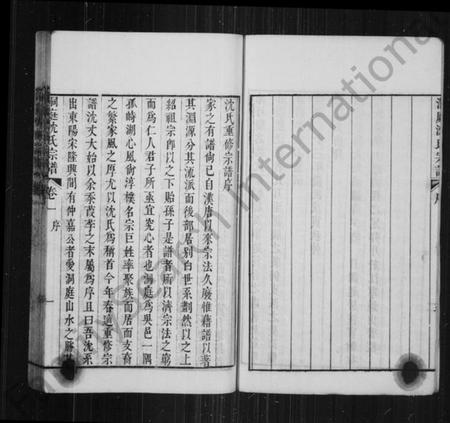 洞庭沈氏宗譜
序
沈氏重修宗譜序
家之有譜尚已自漢唐以來宗法久廢惟藉譜以著
其淵源分其流派而後部居別白世系劃然以之上
紹祖宗卽以之下貽孫子是譜者所以濟宗法之窮
而爲仁人君子所亟宜究心者也洞庭爲吳邑一隅
孤峙湖心風尙淳樸名宗巨姓率聚族而居而支裔
之繁家風之厚尤以沈氏爲稱首今年春適重修宗
譜沈丈大始以余忝葭莩之末屬爲序且曰吾沈系
出東陽宋隆興間有仲嘉公者愛洞庭山水之勝
洞庭沈氏宗譜 卷一 序 一
Research International